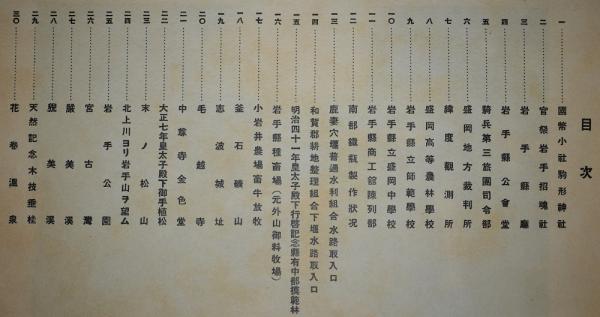 目次
一 國幣小社駒形神社
二 官祭岩手招魂社
三 岩手縣廳
四 岩手縣公會堂
五 騎兵第三旅團司令部
六 盛岡地方裁判所
七 緯度觀測所
八 盛岡高等農林學校
九 岩手縣立師範學校
一〇 岩手縣立盛岡中學校
一一 岩手縣商工館陳列部
一二 南部鐵瓶製作狀況
一三 鹿妻穴堰普通水利組合水路取入口
一四 和賀郡耕地整理組合下堰水路取入口
一五 明治四十一年皇太子殿下行啓記念縣有中部模範林
一六 岩手縣種畜場(元外山御料牧場)
一七 小岩井農場畜牛放牧
一八 釜石礦山
一九 志波城址
二〇 毛越寺
二一 中尊寺金色堂
二二 大正七年皇太子殿下御手植松
二三 末ノ松山
二四 北上川ヨリ岩手山ヲ望ム
二五 岩手公園
二六 宮古灣
二七 嚴美溪
二八 猊鼻溪
二九 天然記念木枝垂桂
三〇 花卷溫泉